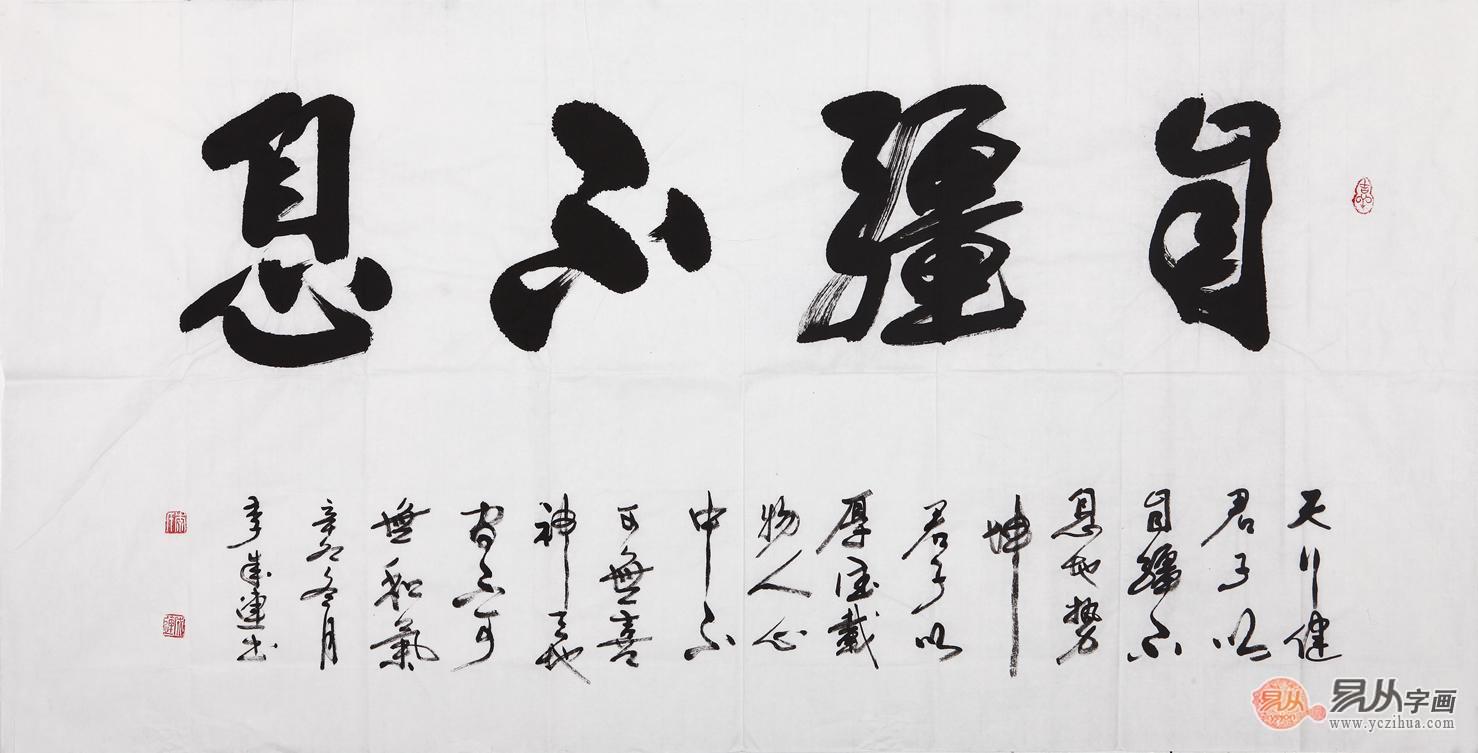 自彊不息
天行健
君子以
自彊不
息地勢
坤
君子以
厚德載
物人心
中不
可無喜
神天地
间不可
無和氣
辛卯冬月
李成連书
易从
易从字画
www.yczihua.com